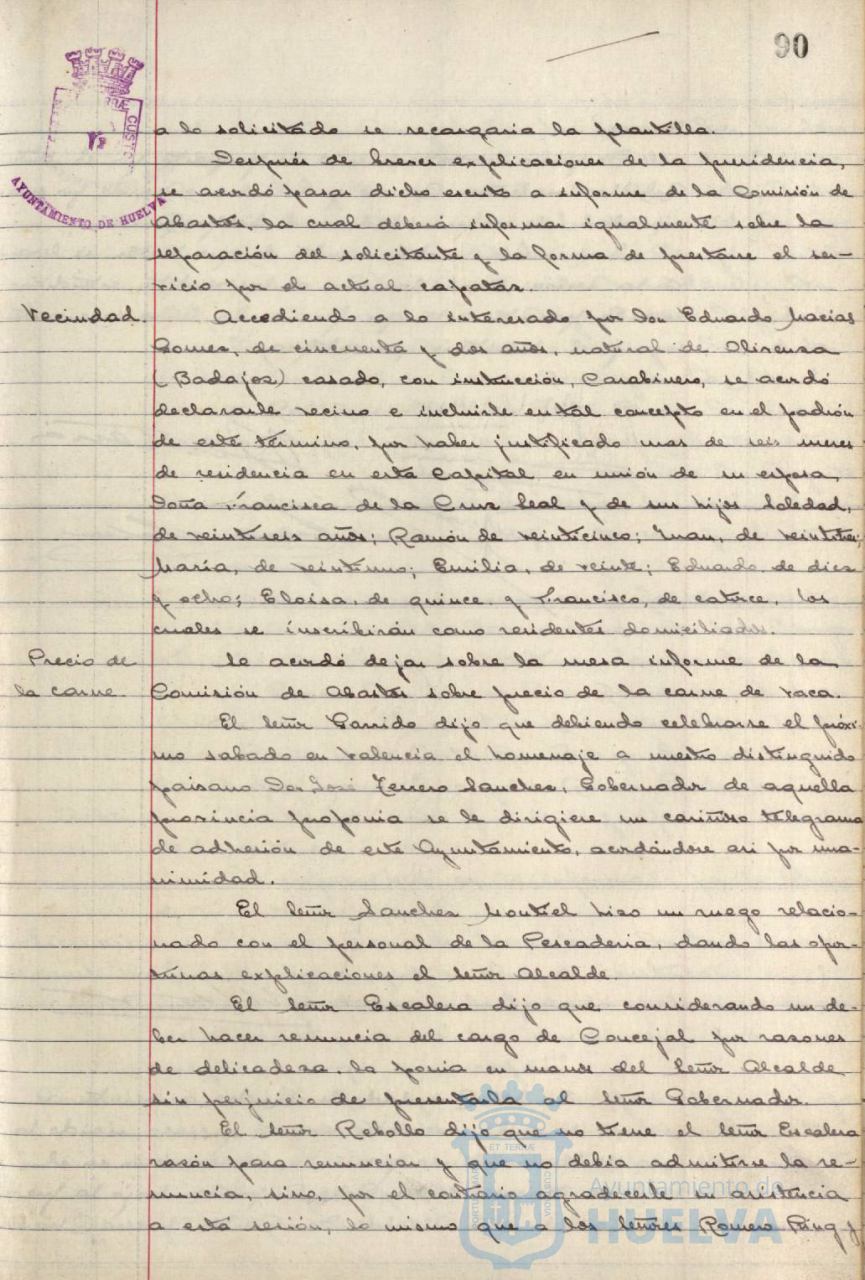 90
CUSTO
AYUNTAMIENTO DE HUELVA
a lo solicitado se recargaria la plantilla.
Después de breves explicaciones de la presidencia,
se acordó pasar dicho escrito a informe de la Comisión de
Abastos, la cual deberá informar igualmente sobre la
separación del solicitante y la forma de prestarse el ser-
vicio por el actual capataz.
Vecindad.
Accediendo a lo interesado por Don Eduardo Macias
Gomez, de cincuenta y dos años, natural de Olivenza
(Badajoz) casado, con instrucción, Carabinero, se acordó
declararle vecino e incluirle en tal concepto en el padrón
de este término, por haber justificado mas de seis meses
de residencia en esta Capital en unión de su esposa,
Doña Francisca de la Cruz Leal y de sus hijos Soledad,
de veintiseis años; Ramón de veinticinco; Juan, de veintitres;
María, de veintiuno; Emilia, de veinte; Eduardo de diez
y ocho; Eloisa, de quince y Francisco, de catorce, los
cuales se inscribirán como residentes domiciliados.
Precio de
la carne
Se acordó dejar sobre la mesa informe de la
Comisión de Abastos sobre precio de la carne de vaca.
El Señor Garrido dijo que debiendo celebrarse el próxi-
mo sabado en Valencia el homenaje a nuestro distinguido
paisano Don José Terrero Sanchez, Gobernador de aquella
provincia proponia se le dirigiese un cariñoso telegrama
de adhesión de este Ayuntamiento, acordándose asi por una-
nimidad.
El Señor Sanchez Montiel hizo un ruego relacio-
nado con el personal de la Pescaderia, dando las opor-
tunas explicaciones el Señor Alcalde.
El Señor Escalera dijo que considerando un de-
ber hacer renuncia del cargo de Concejal por razones
de delicadeza, la ponia en manos del Señor Alcalde
sin perjuicio de presentarla al Señor Gobernador.
El Señor Rebollo dijo que no tiene el Señor Escalera
razón para renunciar y que no debia admitirse la re-
nuncia, sino, por el contrario agradecerle su asistencia
a esta sesión, lo mismo que a los Señores Romero Ring y
Ayuntamiento de
HUELVA